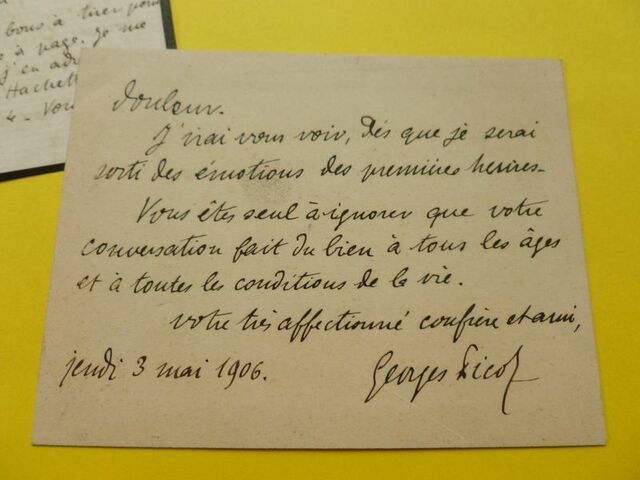 bons à tirer pour
à page. Je me
j'en
Hachet
4 - Vou
douleur.
J'irai vous voir, dés que je serai
sorti des émotions des premières heures.
Vous êtes seul à ignorer que votre
conversation fait du bien à tous les âges
et à toutes les conditions de la vie.
votre très affectionné confrère et ami,
jeudi 3 mai 1906.
Georges Picot